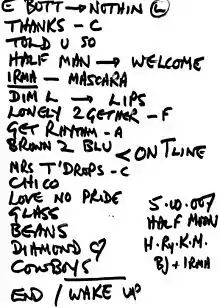 E BOTT → NOTHIN Ⓛ
THANKS - C
TOLD U SO
HALF MAN → WELCOME
IRMA - MASCARA
DIM L → LIPS
LONELY 2GETHER - F
GET RHYTHM - A
BROWN 2 BLU < ON T LINE
MRS T'DROPS - C
CHICO
LOVE NO PRIDE
GLASS
BEANS
DIAMOND ♡
COWBOYS
END / WAKE UP
5.10.007
HALF MOON
H.R.Y.K.M.
BJ + IRMA